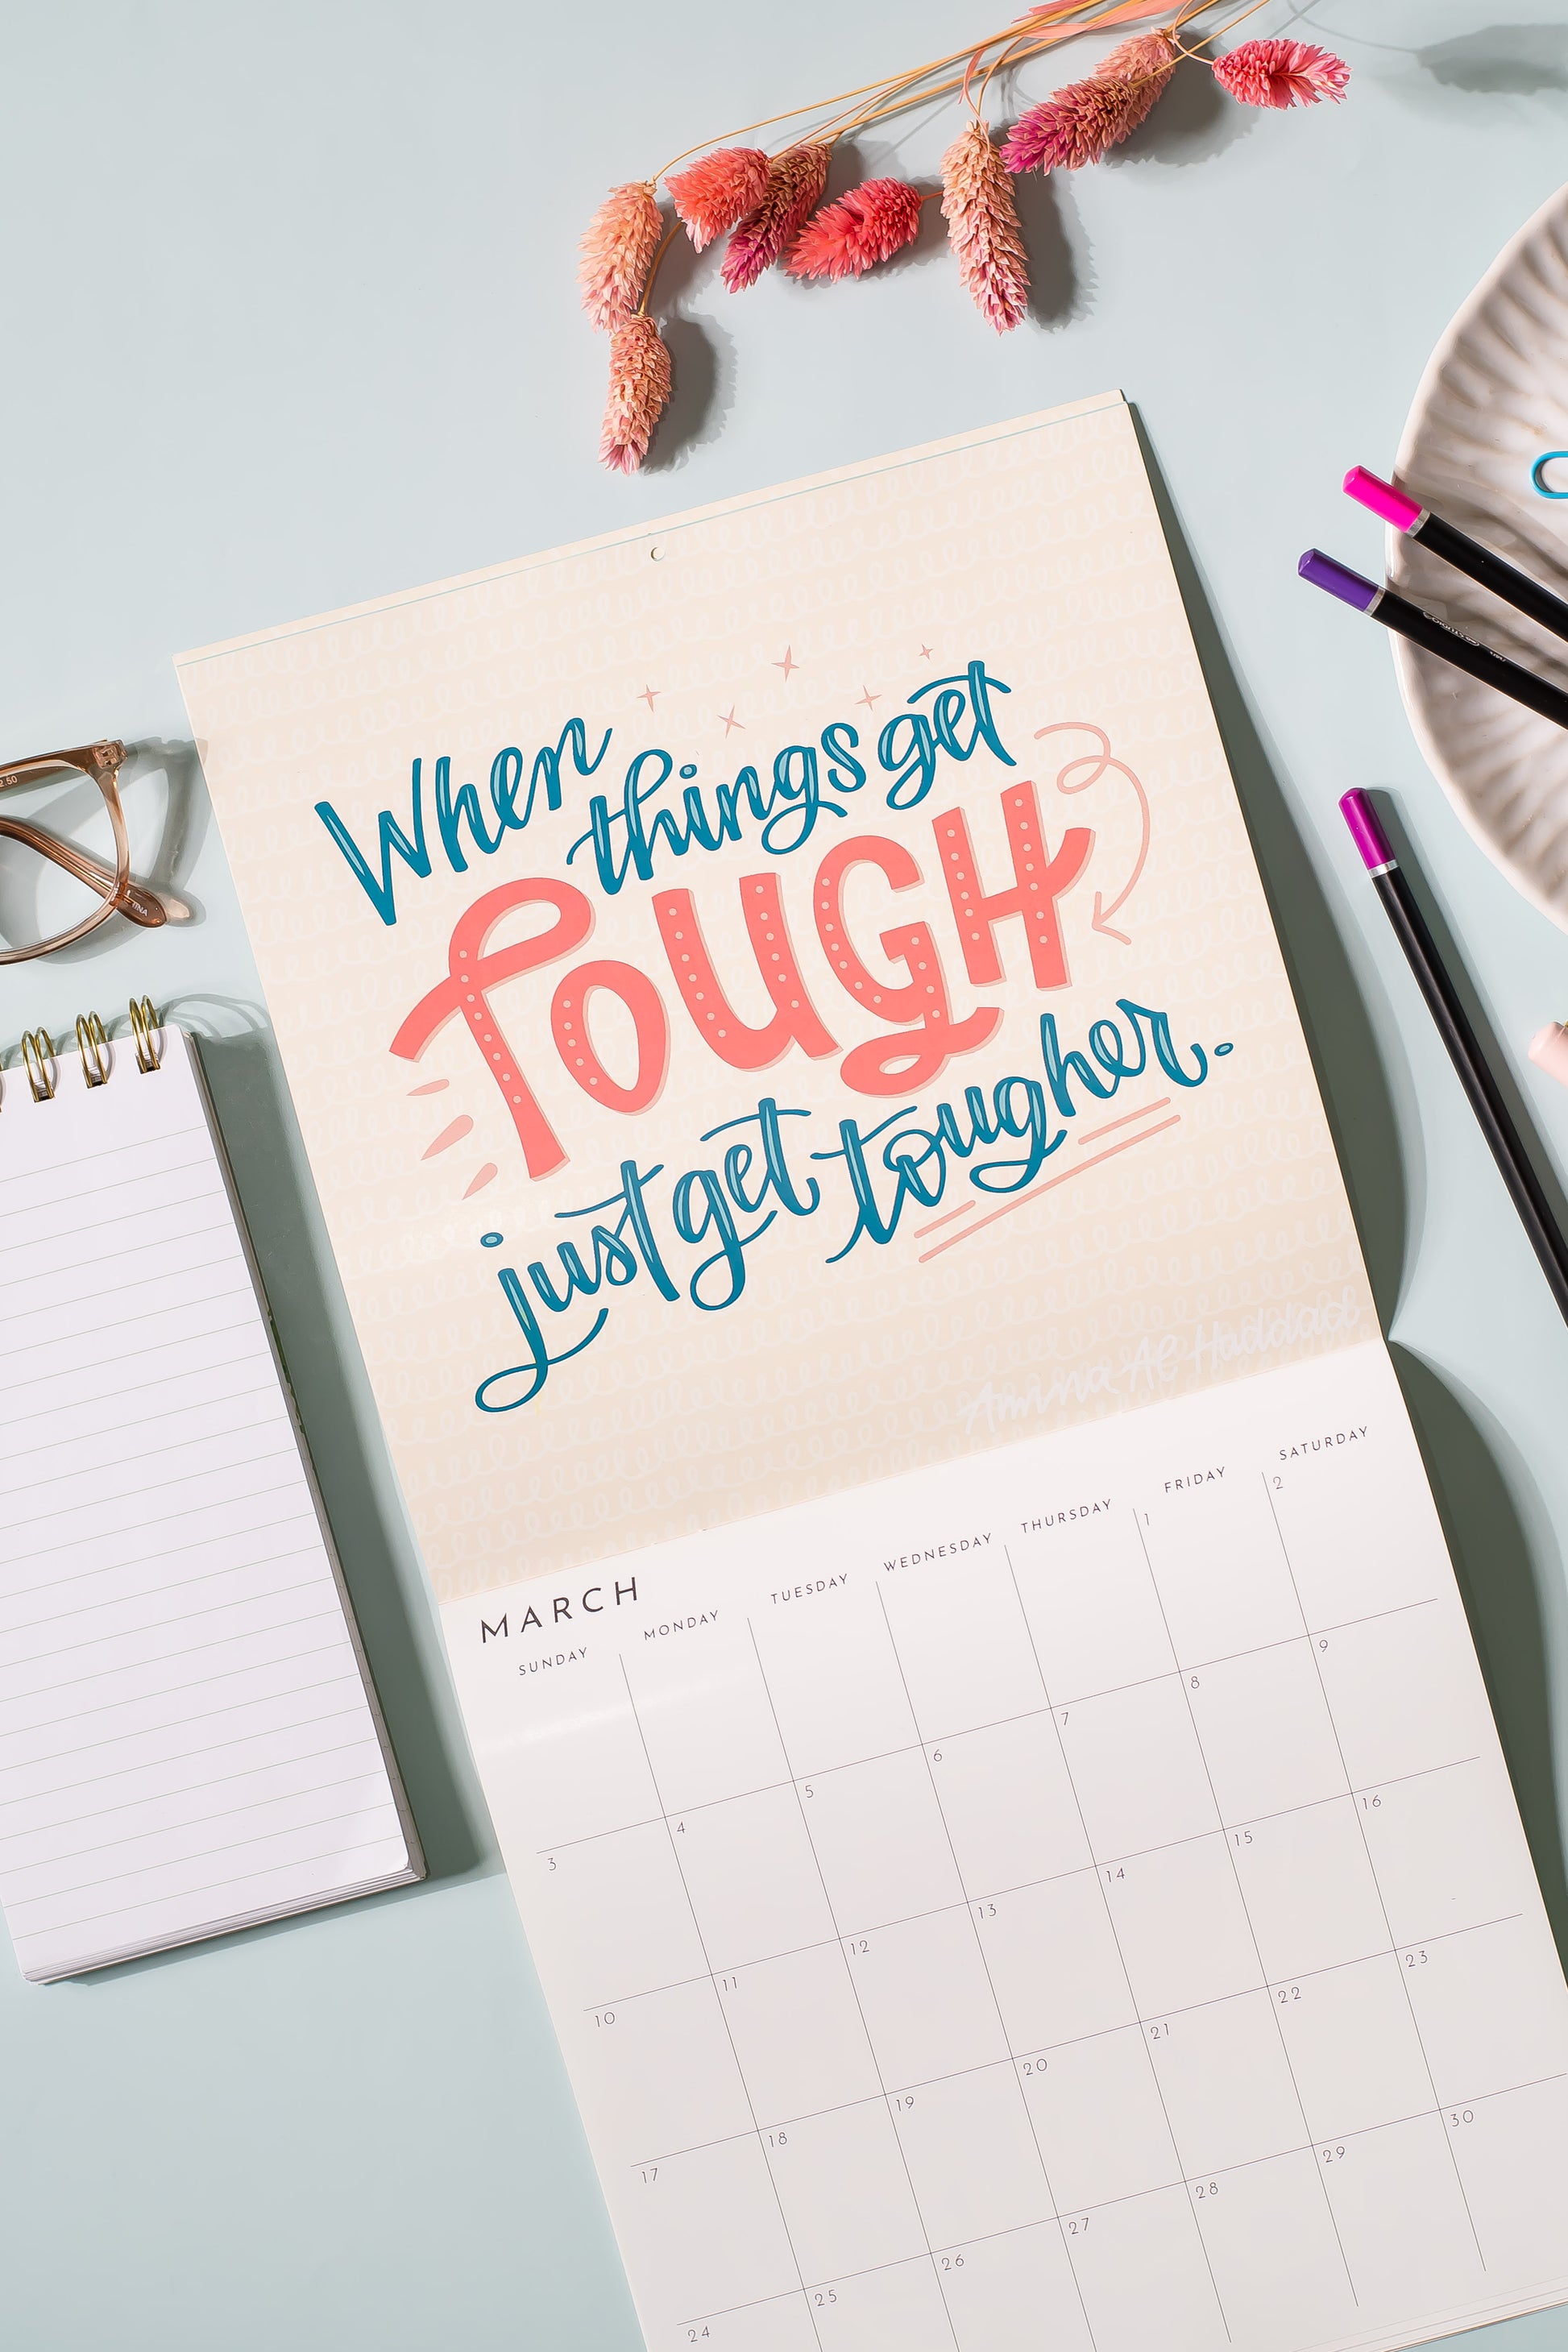 When
things get
TOUGH
just get tougher.
Amna Al Haddad
MARCH
SUNDAY MONDAY TUESDAY WEDNESDAY THURSDAY FRIDAY SATURDAY
1 2
3 4 5 6 7 8 9
10 11 12 13 14 15 16
17 18 19 20 21 22 23
24 25 26 27 28 29 30